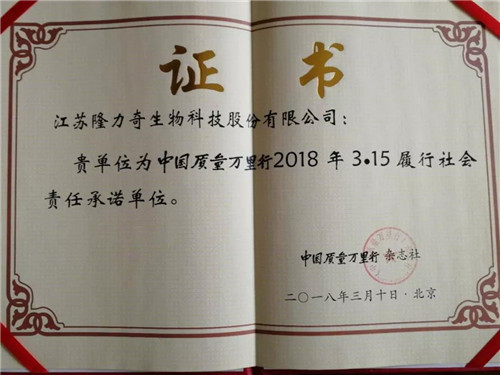 证书
江苏隆力奇生物科技股份有限公司：
贵单位为中国质量万里行2018年3•15履行社会
责任承诺单位。
中国质量万里行 杂志社
二〇一八年三月十日·北京